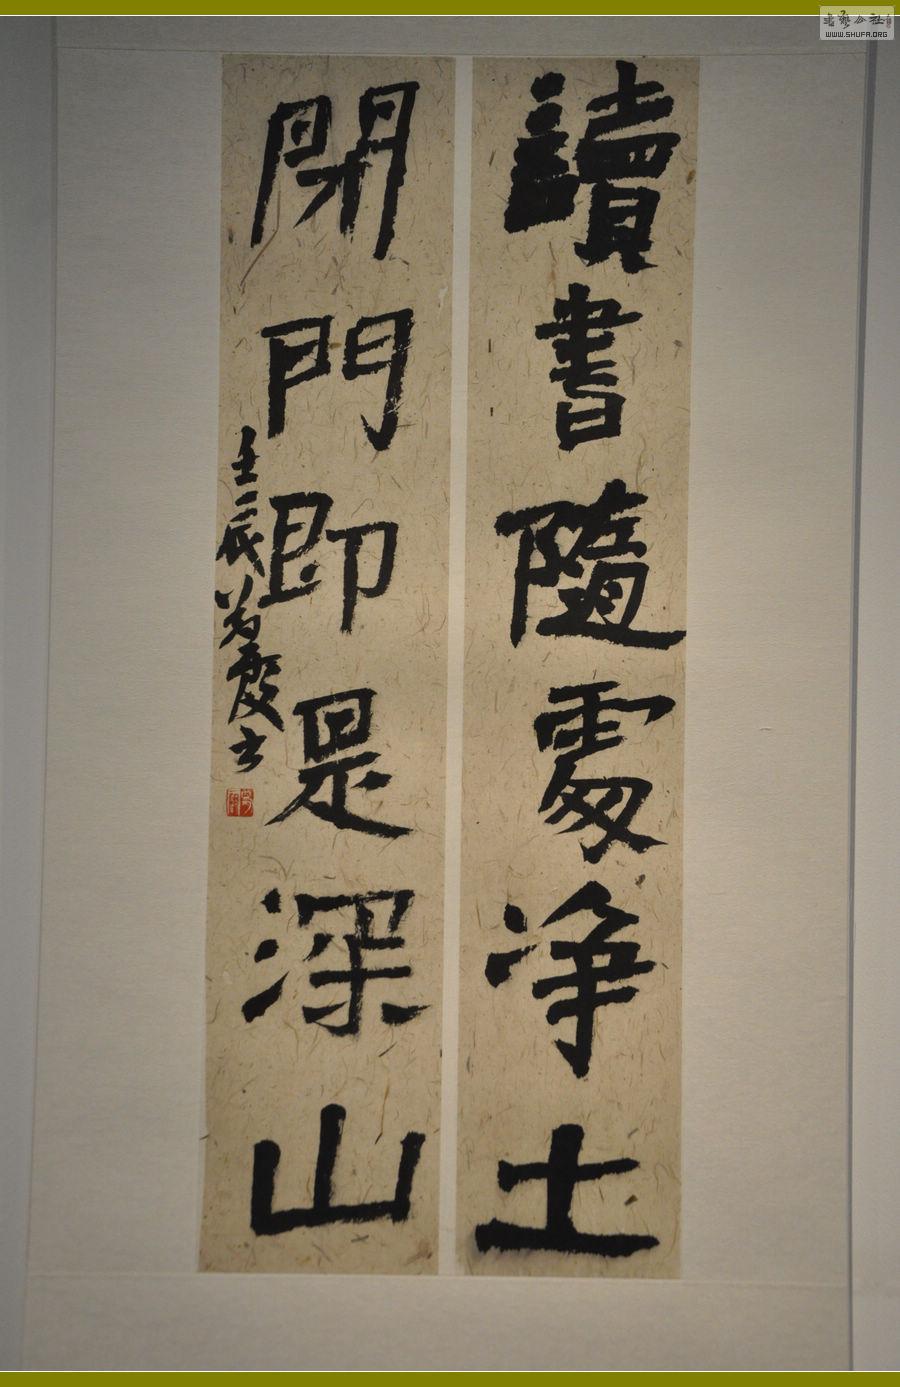 讀書隨處净土
閉門即是深山
壬辰
書藝公社
WWW.SHUFA.ORG